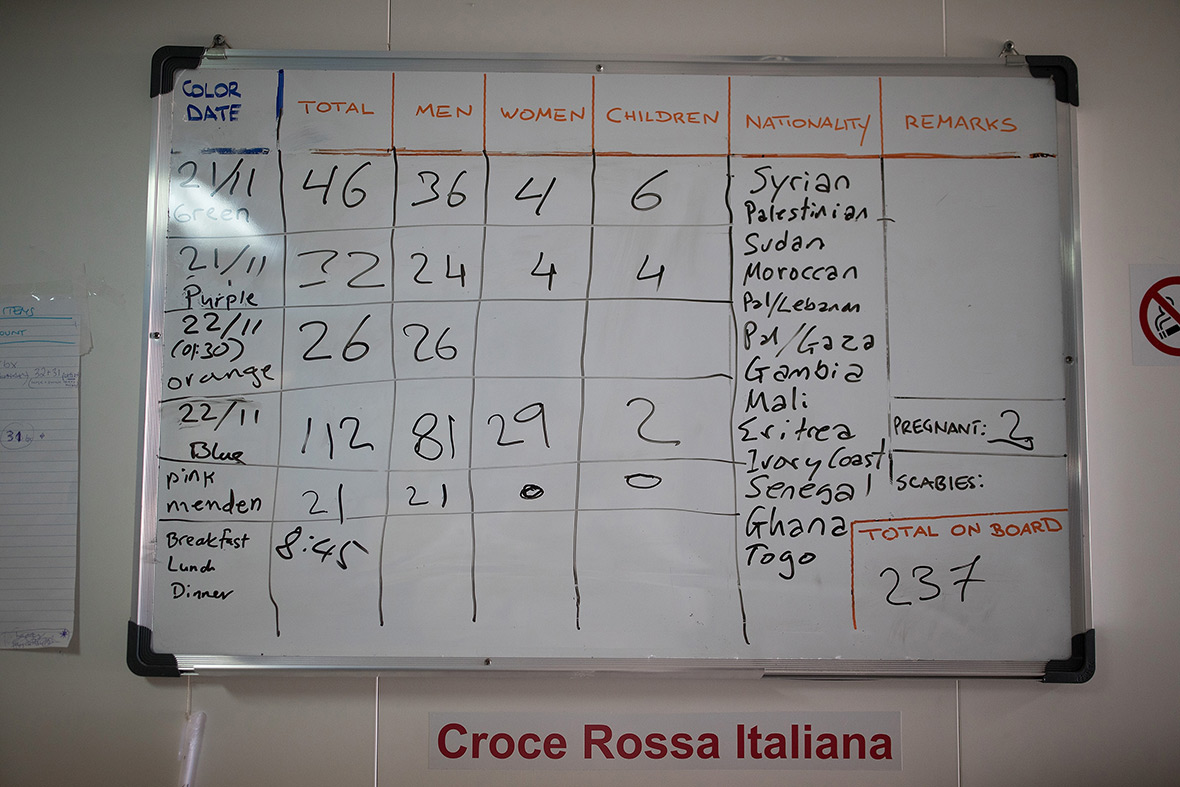 COLOR DATE TOTAL MEN WOMEN CHILDREN NATIONALITY REMARKS
21/11 Green 46 36 4 6
21/11 Purple 32 24 4 4
22/11 (01:30) orange 26 26
22/11 Blue 112 81 29 2
pink menden 21 21 0 0
Breakfast 8:45
Lunch
Dinner
Syrian
Palestinian
Sudan
Moroccan
Pal/Lebanon
Pal/Gaza
Gambia
Mali
Eritrea
Ivory Coast
Senegal
Ghana
Togo
PREGNANT: 2
SCABIES:
TOTAL ON BOARD
237
ITEMS
31
Croce Rossa Italiana